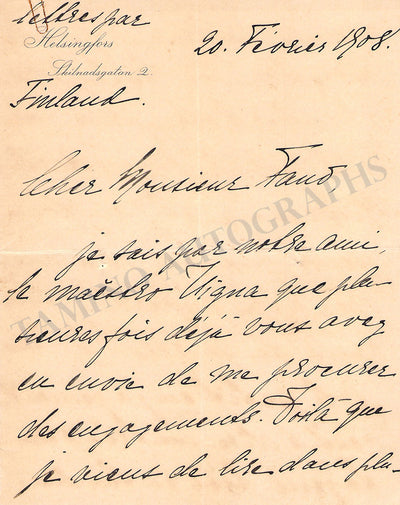 lettres par
Helsingfors
20. Février 1908.
Skilnadsgatan 2.
Finland.
Cher Monsieur Fano
je sais par notre ami,
le maëstro Vigna que plu-
sieures fois déjà vous avez
eu envie de me procurer
des engagements. Voilà que
je viens de lire dans plu-
TAMINO AUTOGRAPHS